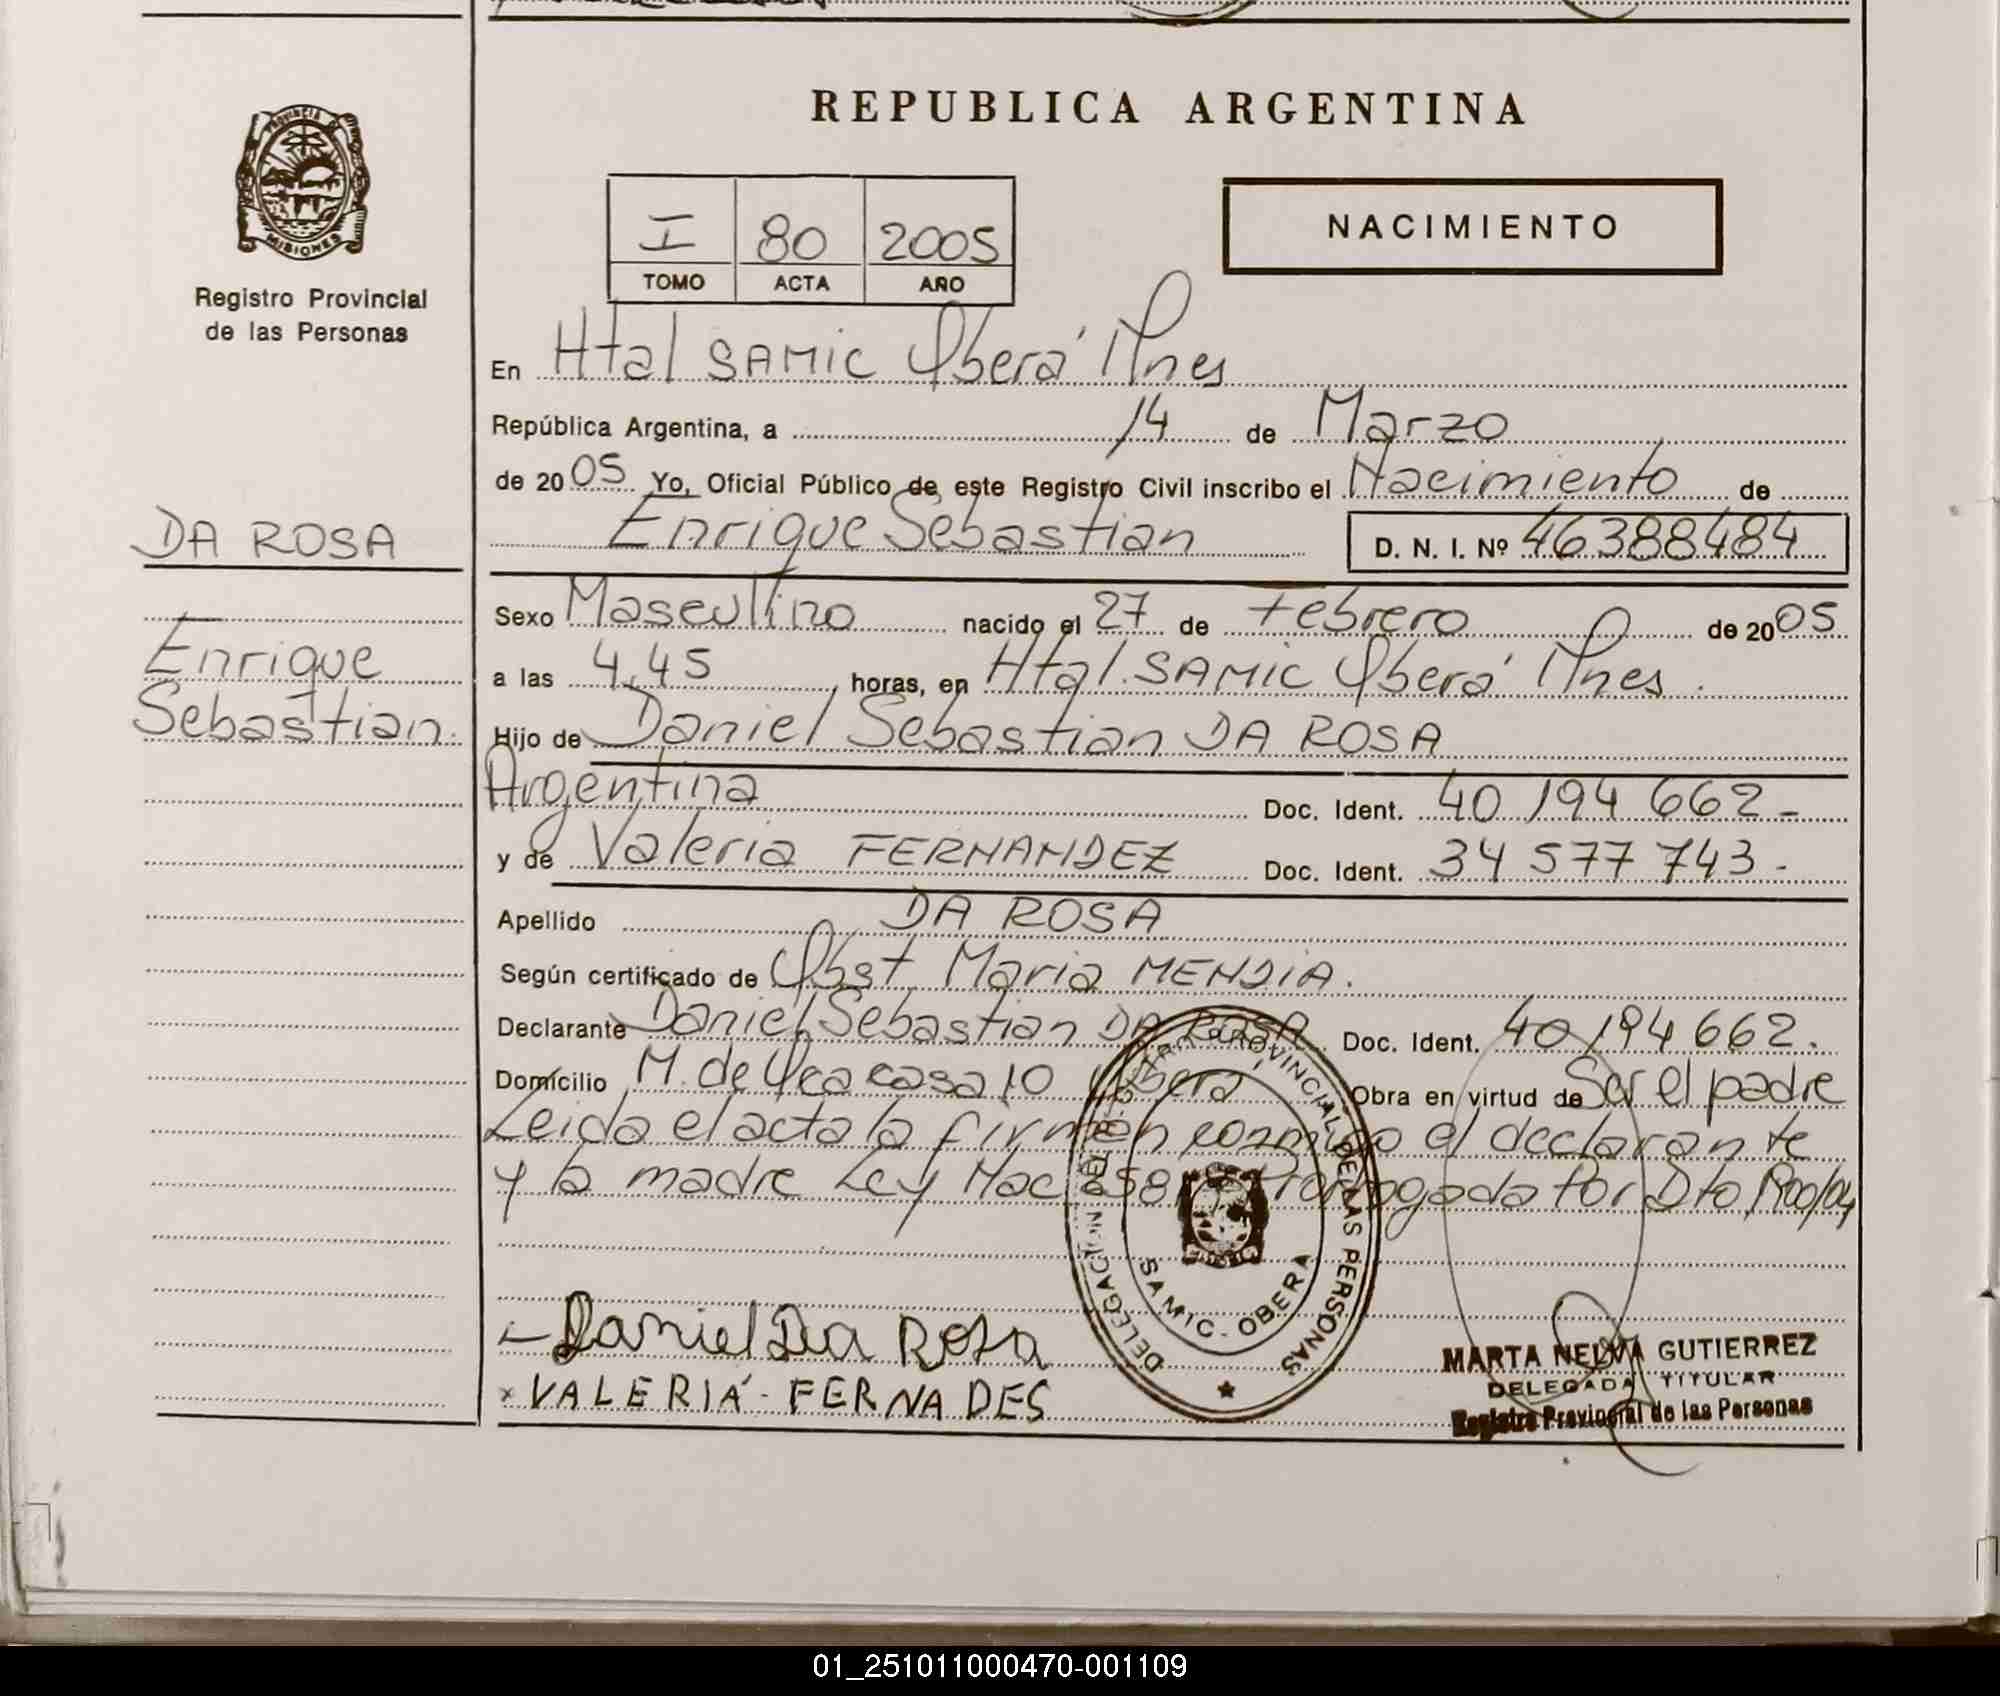 REPUBLICA ARGENTINA
Provincia de
MISIONES
Registro Provincial
de las Personas
I 80 2005
TOMO ACTA AÑO
NACIMIENTO
En Htal SAMIC Oberá Mnes
República Argentina, a 14 de Marzo
de 2005 Yo, Oficial Público de este Registro Civil inscribo el Nacimiento de
Enrique Sebastian D. N. I. Nº 46388484
DA ROSA
Enrique
Sebastian.
Sexo Masculino nacido el 27 de Febrero de 2005
a las 4,45 horas, en Htal. SAMIC Oberá Mnes.
Hijo de Daniel Sebastian DA ROSA
Argentina Doc. Ident. 40 194 662-
y de Valeria FERNANDEZ Doc. Ident. 34 577 743-
Apellido DA ROSA
Según certificado de Obst. Maria MENDIA.
Declarante Daniel Sebastian DA ROSA Doc. Ident. 40 194 662.
Domicilio M. de Oca casa 10 Oberá Obra en virtud de Ser el padre
Leida el acta la firman conmigo el declarante
y la madre Ley Nac Prorrogada Por Dto
DELEGACION DEL REGISTRO PROVINCIAL DE LAS PERSONAS
SAMIC - OBERA
- Daniel Da Rosa
x VALERIA - FERNADES
MARTA NELVA GUTIERREZ
DELEGADA TITULAR
Registro Provincial de las Personas
01_251011000470-001109